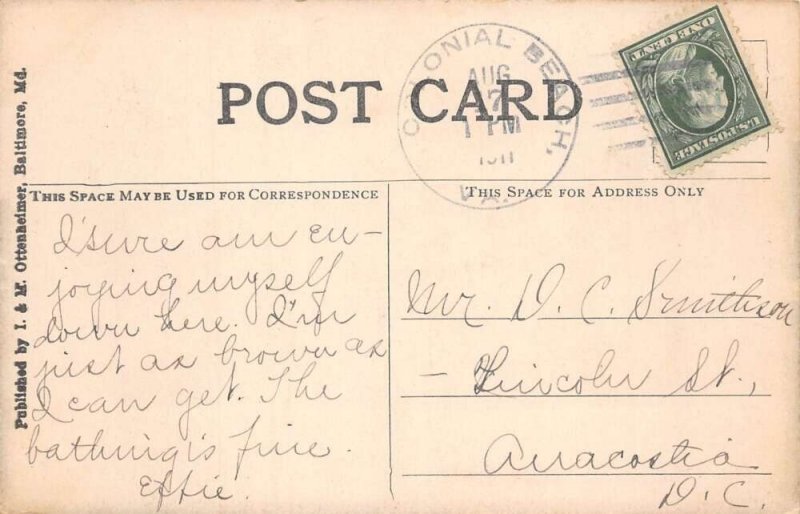 POST CARD
COLONIAL BEACH, VA.
AUG
7
1 PM
1911
ONE CENT
U.S. POSTAGE
Published by I. & M. Ottenheimer, Baltimore, Md.
THIS SPACE MAY BE USED FOR CORRESPONDENCE
I sure am en-
joying myself
down here. I'm
just as brown as
I can get. The
bathing is fine.
Effie.
THIS SPACE FOR ADDRESS ONLY
Mr. D. C. Smithson
- Lincoln St.,
Anacostia
D.C.